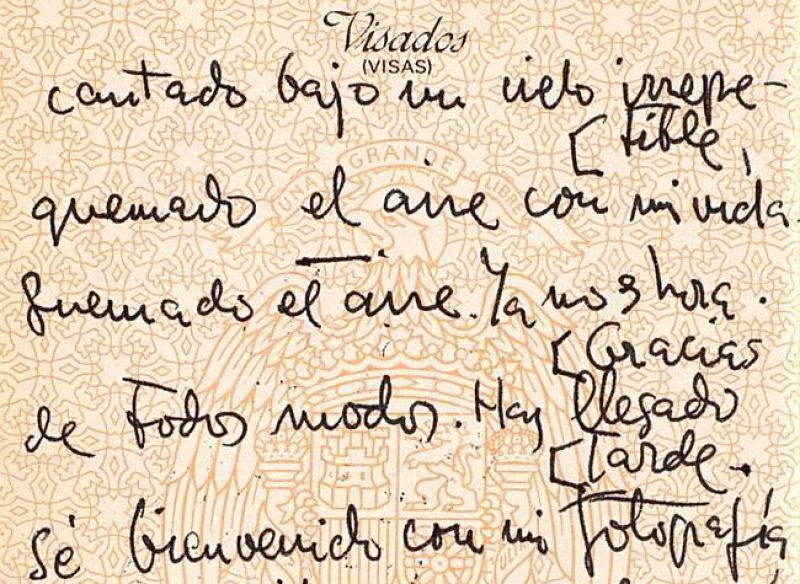 Visados
(VISAS)
cantado bajo un cielo irrepe-
[tible,
UNA GRANDE LIBRE
quemado el aire con mi vida.
quemado el aire. Ya no es hora.
[Gracias
de todos modos. Has llegado
[tarde.
Sé bienvenido con mi fotografía